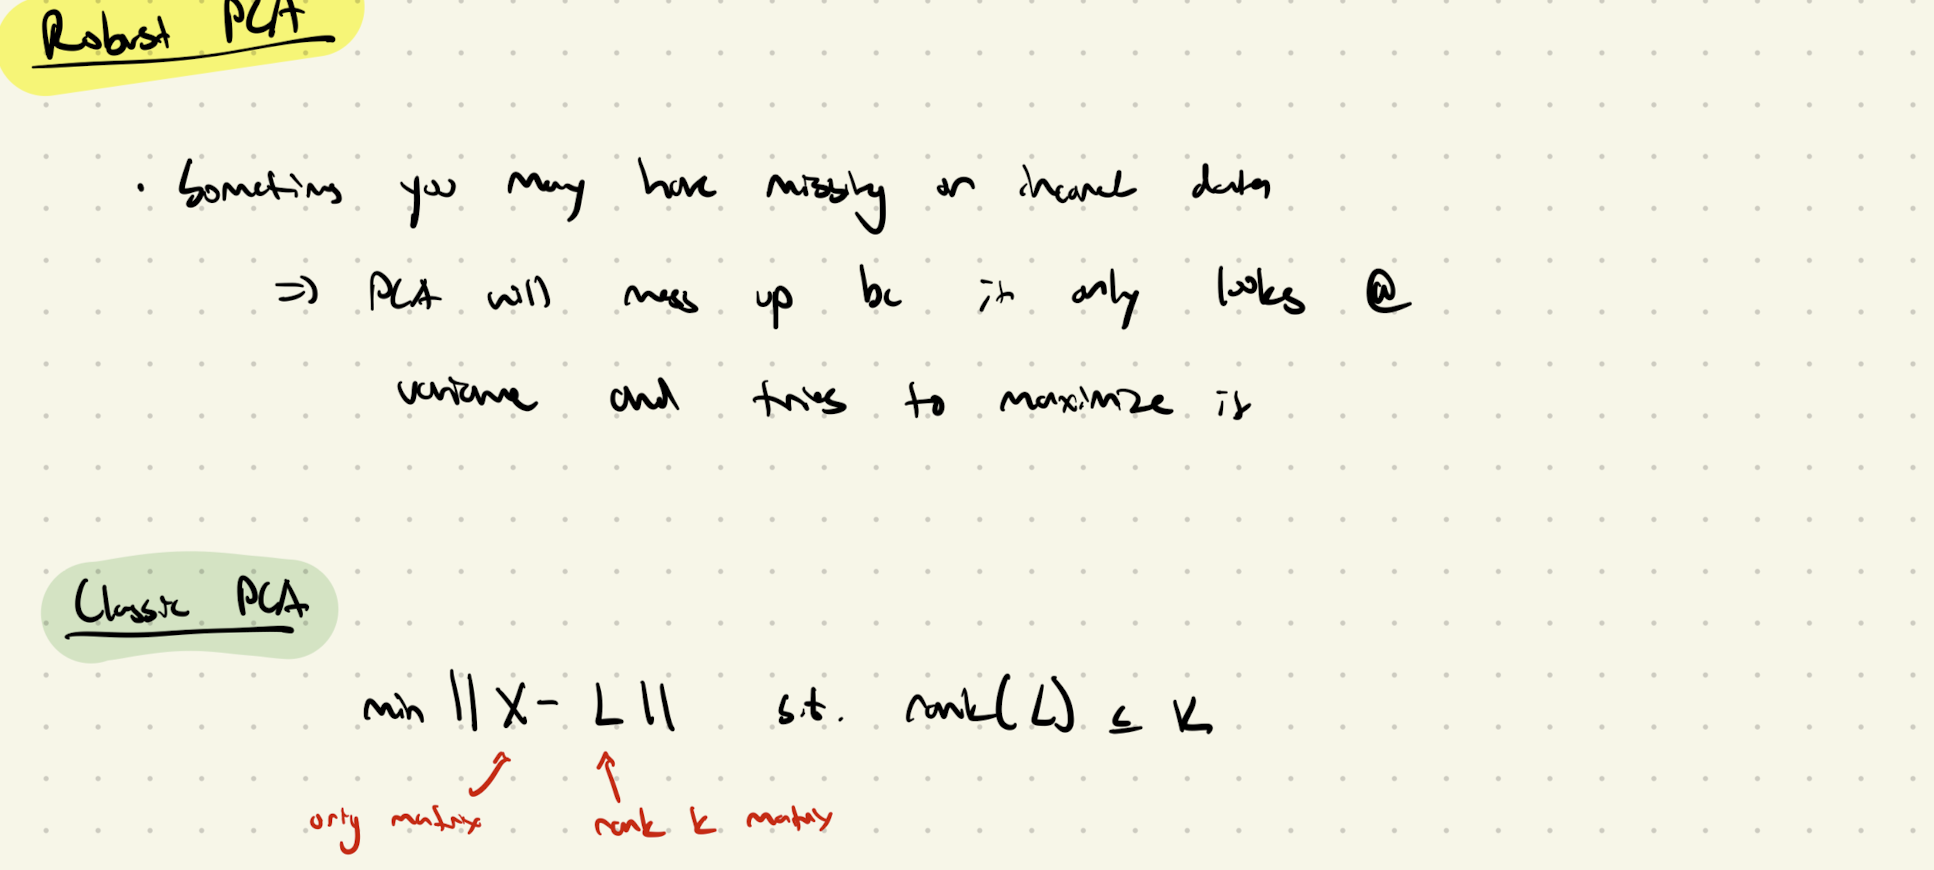 Robust PCA
· Sometimes you may have missing or data
⇒ PCA will mess up bc it only looks @
variance and tries to maximize it
Classic PCA
min ||X - L|| s.t. rank(L) ≤ K
matrix rank k matrix